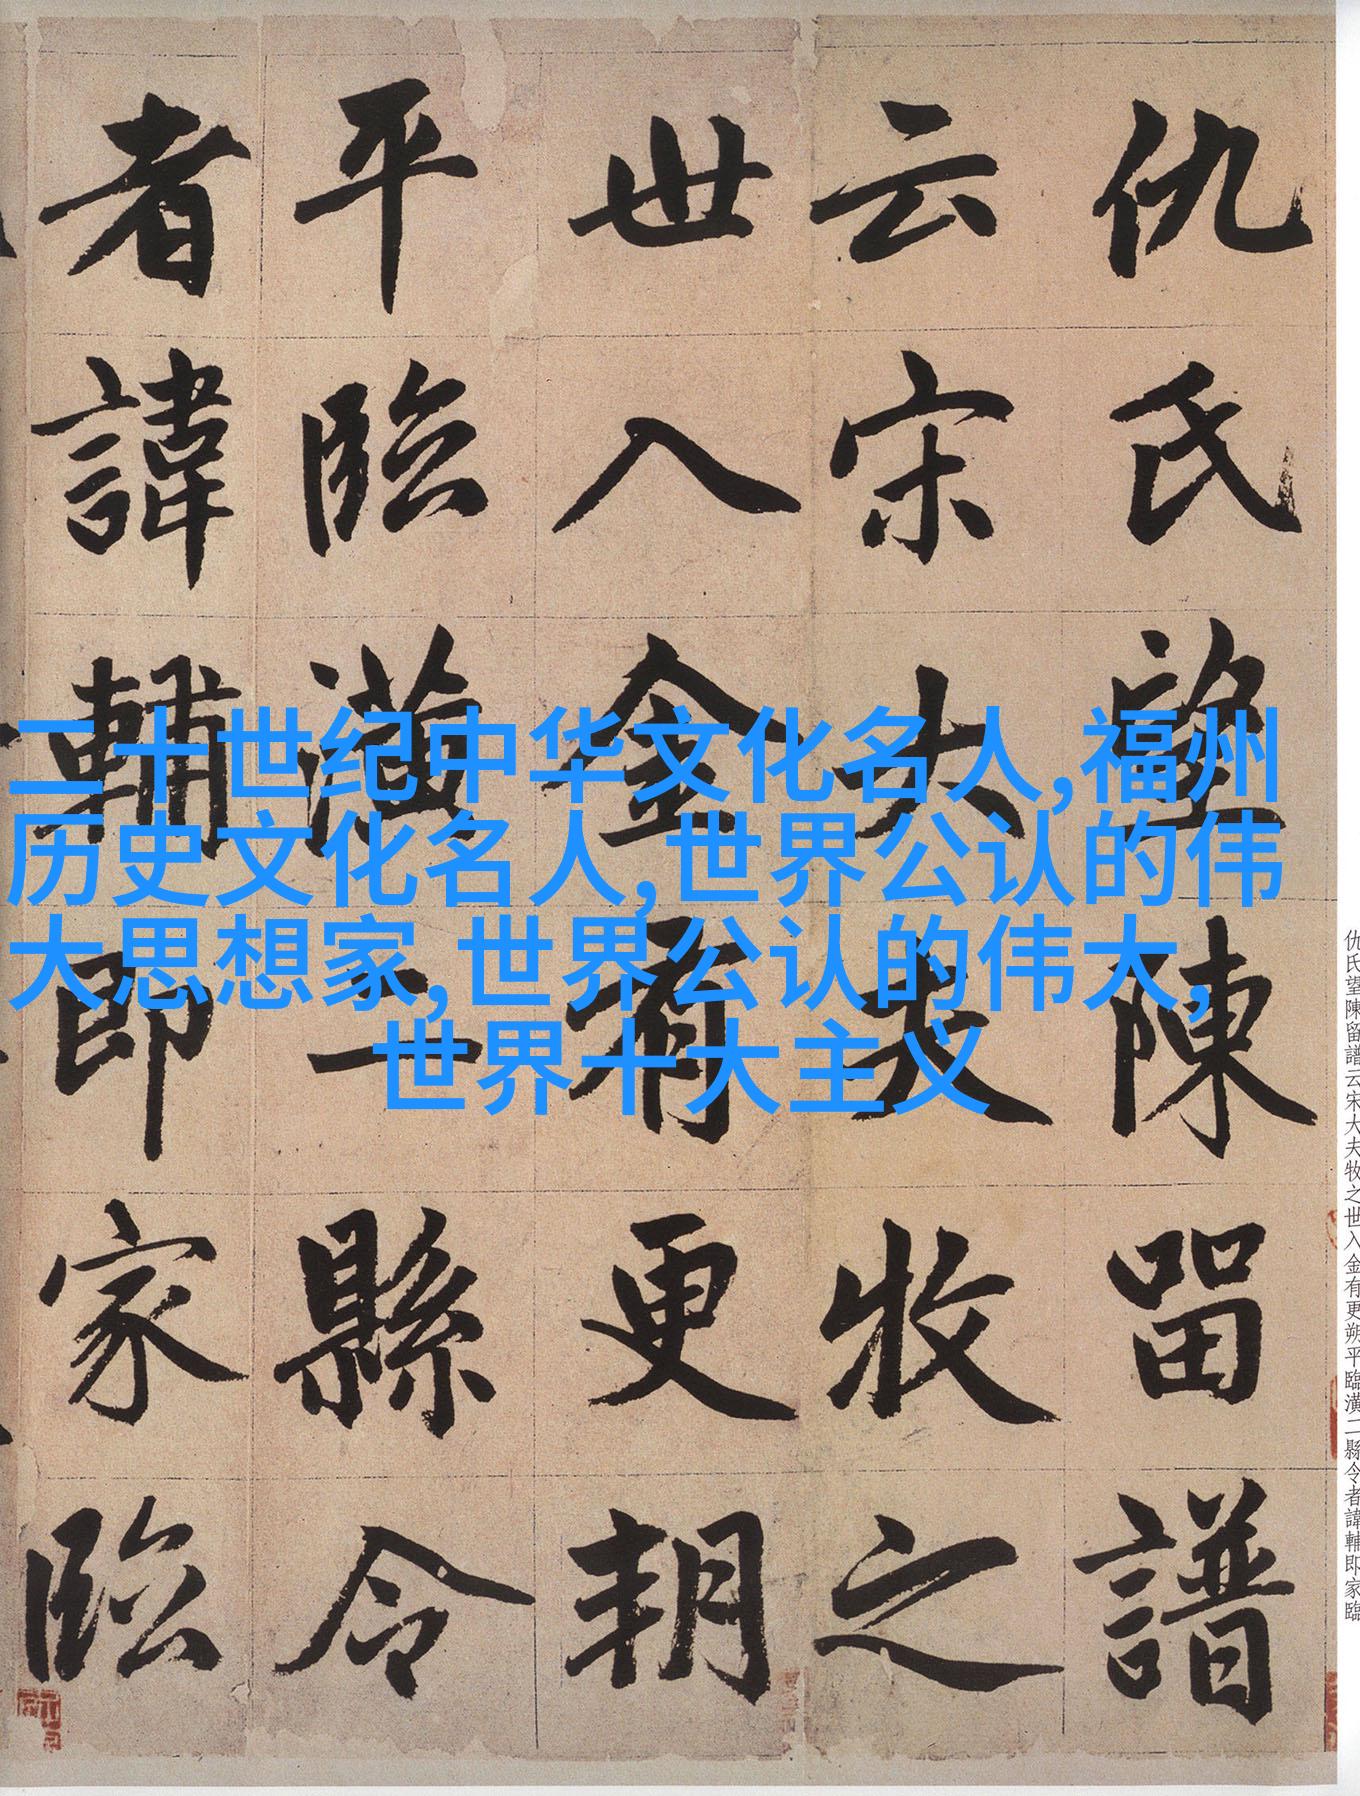 仇氏望陳留譜
云宋大夫牧之
世入金有更朔
平臨潢二縣令
者諱輔即家臨
二十世纪中华文化名人,福州
历史文化名人,世界公认的伟
大思想家,世界公认的伟大,
世界十大主义
仇氏望陳留譜云宋大夫牧之世入金有更朔平臨潢二縣令者諱輔即家臨